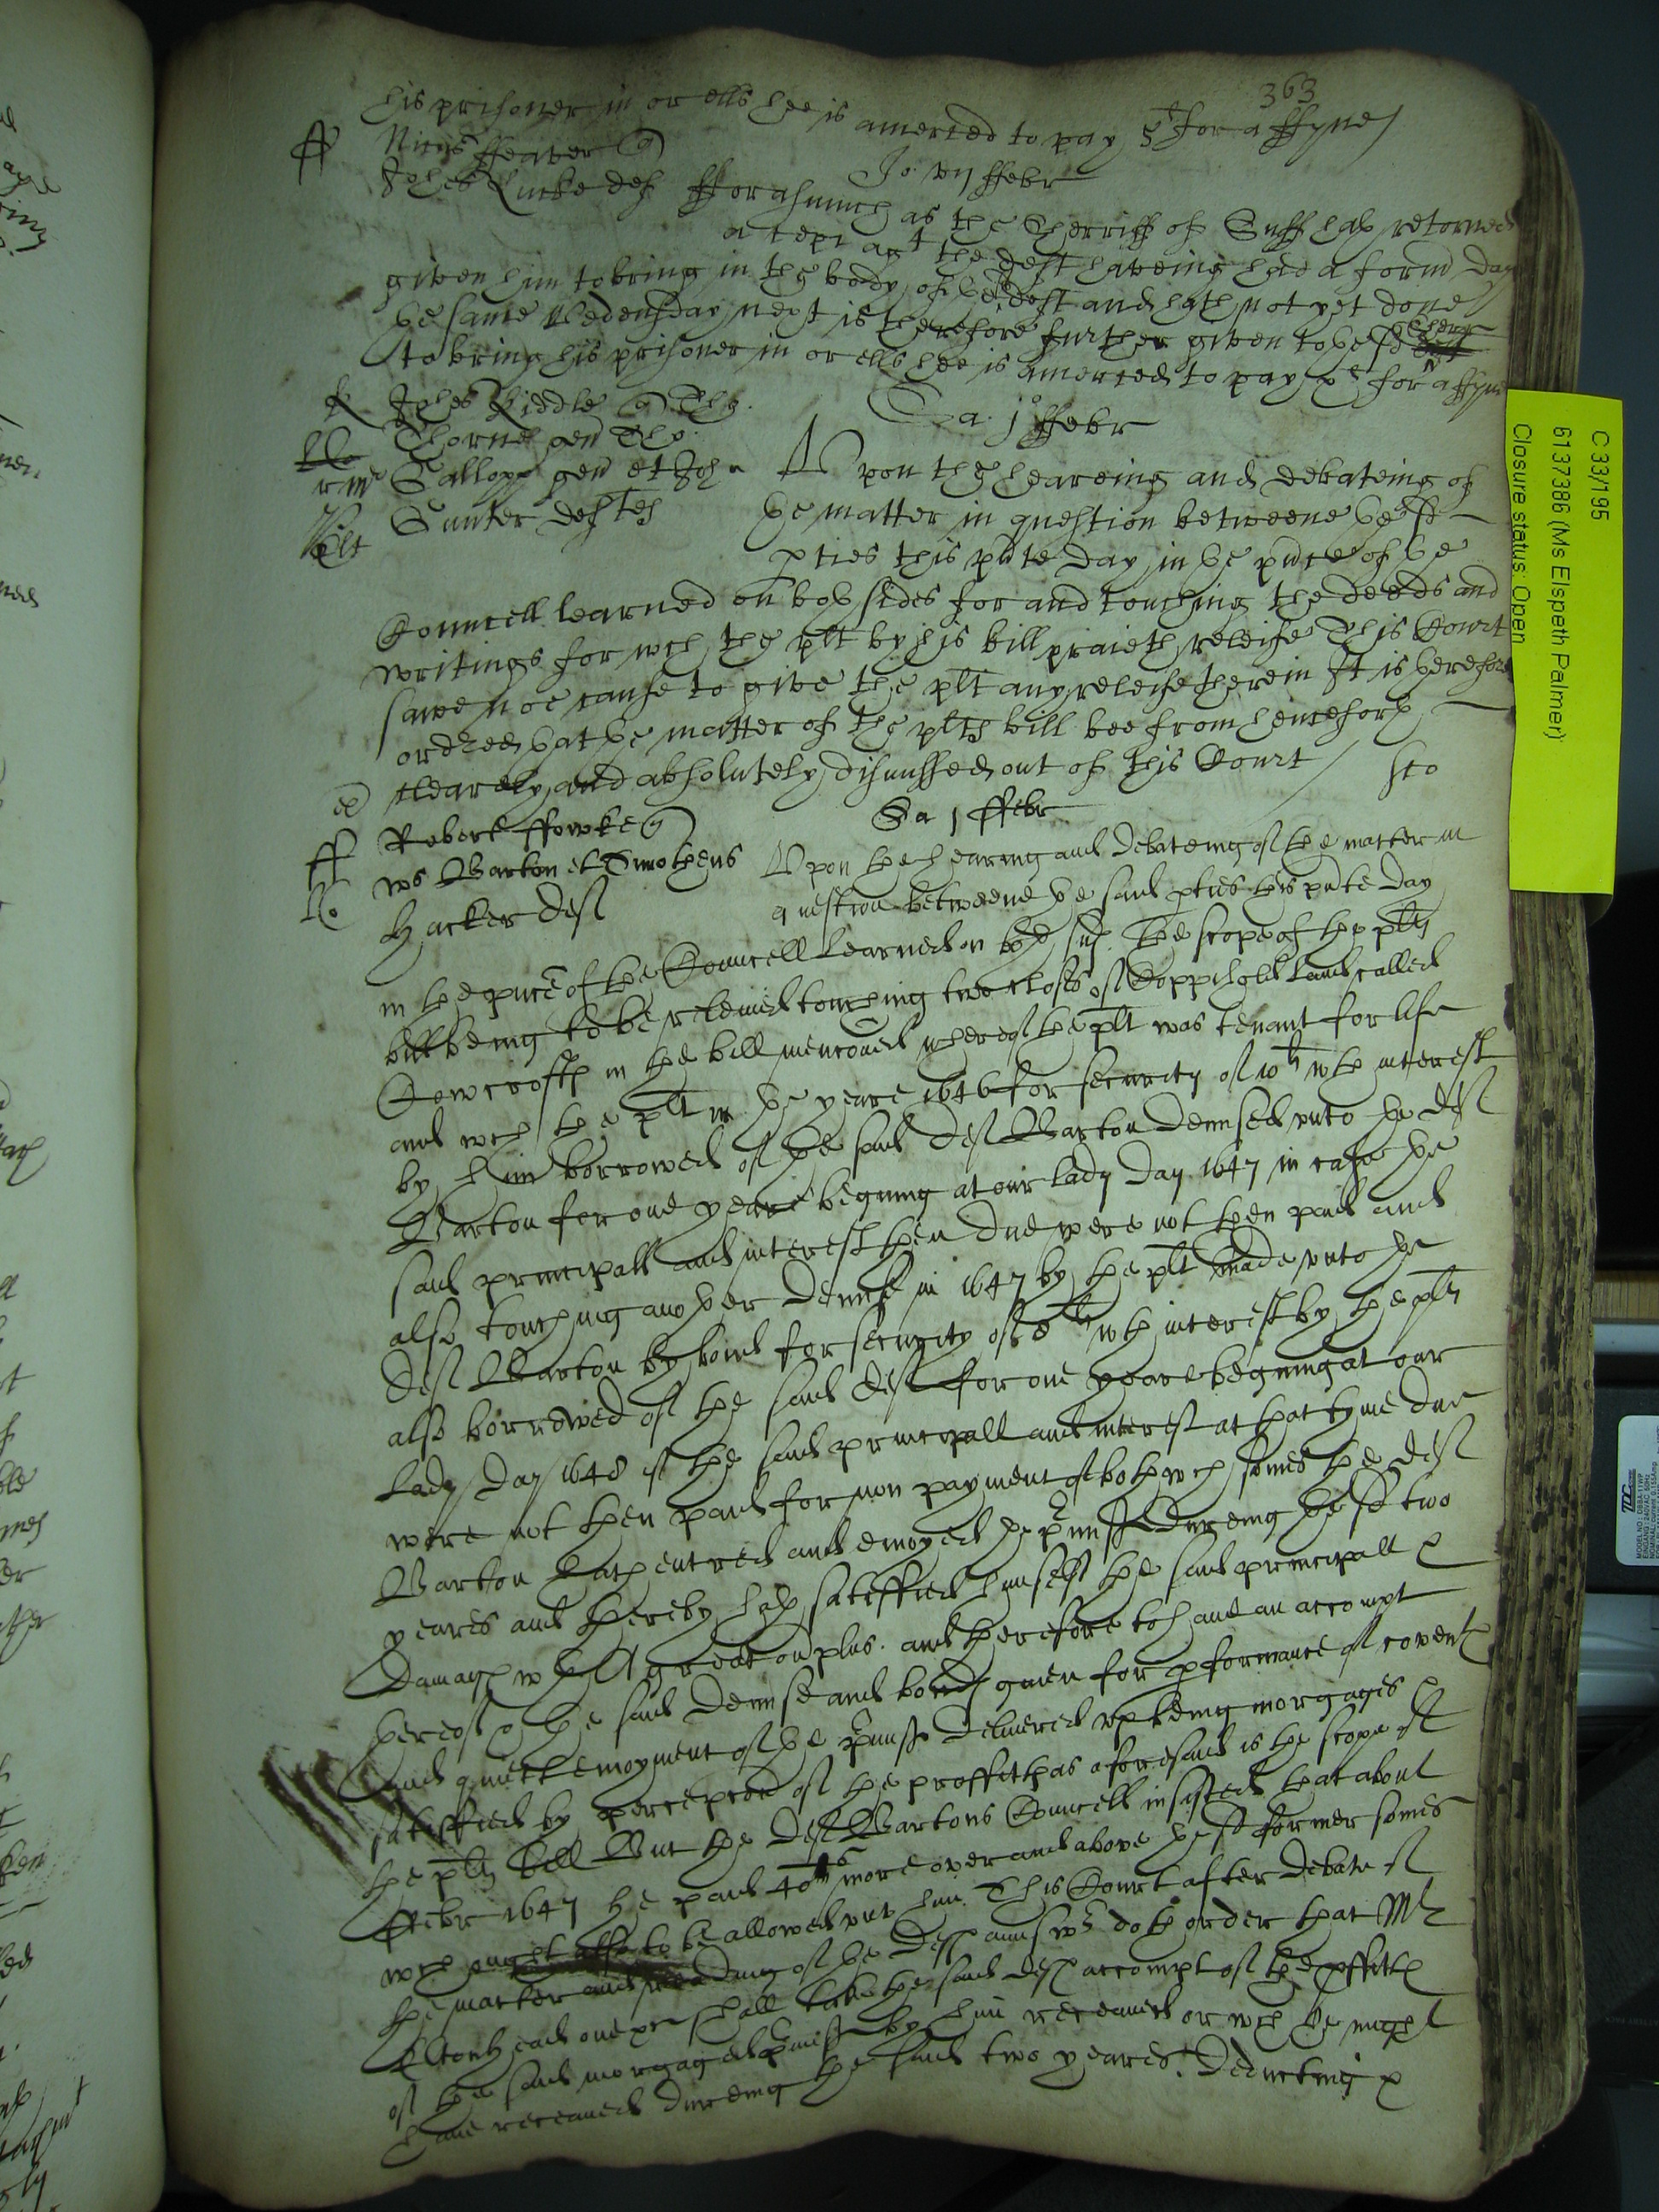 363
his prisoner in or ells hee is amerced to pay 5li for a ffyne
Jo vij ffebr
Johes Lucke def fforasmuch as the Sherriff of Suff hath retorned
a cepi agt the deft haveing had a form day
given him to bring in the body of ye sd deft and hath not yet done
ye same Wedensday next is therefore further given to ye sd Sherr
to bring his prisoner in or ells hee is amerced to pay xli for a ffyne
Sa j ffebr
Johes Kiddle q Tho
Thorne gen Tho
Gallopp gen et Joh
Sunter deftes
Upon the heareing and debateing of
ye matter in question betweene ye sd
pties this pnte day in ye pnce of ye
Councell learned on both sides for and touching the deeds and
writings for wch the plt by his bill praieth releife This Court
sawe noe cause to give the plt any releife therein It is therefore
ordred that ye matter of the plts bill bee from henceforth
clearely and absolutely dismissed out of this Court
Sa j ffebr
Robert ffowke q
Barton et Timotheus
Hacker def
Upon the hearing and debateing of the matter in
question betweene the said pties this pnte day
in the pnce of the Councell learned on both sides the scope of the plts
bill being to be releived touching two closes of Coppihold land called
Cowcrofts in the bill menconed whereof the plt was tenant for life
and wch the plt in the yeare 1646 for security of 10li wth interest
by him borrowed of the said deft Barton demised unto the deft
Barton for one yeare begining at our Lady day 1647 in case the
said principall and interest then due were not then paid and
also touching another demise in 1647 by the plt made unto the
deft Barton by bond for security of 8li wth interest by the plt
also borrowed of the said deft for one yeare begining at our
Lady day 1648 if the said principall and interest at that tyme due
were not then paid for non payment of both wch somes the deft
Barton hath entred and enioyed the pmisses dureing the sd two
yeares and thereby hath satisffied himself the said principall &
damage wth great ouplus and therefore to have an accompt
thereof & the said demise and bonds given for pformance of covents
and quiett enioyment of the pmisses delivered up being morgages &
satisffied by percepcon of the proffitts as aforesaid is the scope of
the plts bill But the deft Bartons Councell insisted that about
ffebr 1647 he paid 40s more over and above the sd former somes
wch ought to be allowed unto him This Court after debate of
the matter and reading of the defts answer doth order that Mr
shall take the said defts accompt of the pffitts
of the said morgaged pmisses by him receaued or wch he might
have receaued dureing the said two yeares Deducting
C 33/195
6137386 (Ms Elspeth Palmer)
Closure status: Open